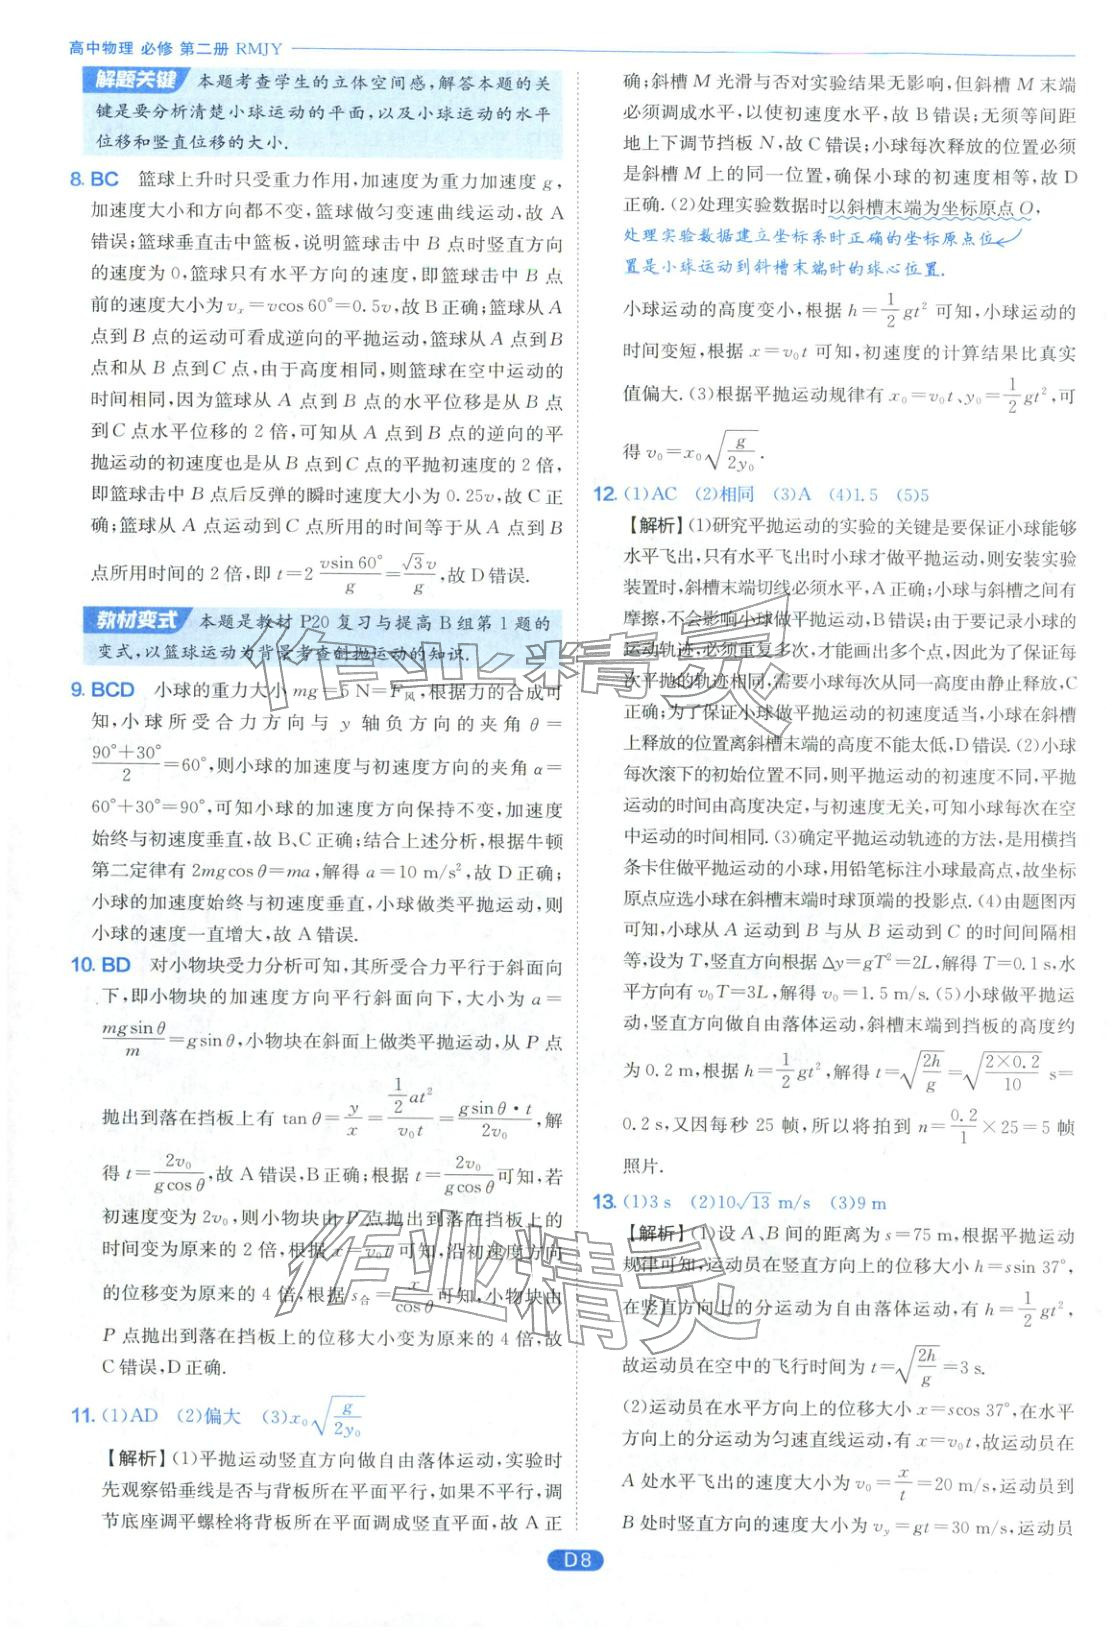 高中物理 必修 第二册 RMJY
解题关键 本题考查学生的立体空间感,解答本题的关
键是要分析清楚小球运动的平面,以及小球运动的水平
位移和竖直位移的大小.
8. BC 篮球上升时只受重力作用,加速度为重力加速度 g,
加速度大小和方向都不变,篮球做匀变速曲线运动,故 A
错误;篮球垂直击中篮板,说明篮球击中 B 点时竖直方向
的速度为 0,篮球只有水平方向的速度,即篮球击中 B 点
前的速度大小为 vₓ=vcos 60°=0.5v,故 B 正确;篮球从 A
点到 B 点的运动可看成逆向的平抛运动,篮球从 A 点到 B
点和从 B 点到 C 点,由于高度相同,则篮球在空中运动的
时间相同,因为篮球从 A 点到 B 点的水平位移是从 B 点
到 C 点水平位移的 2 倍,可知从 A 点到 B 点的逆向的平
抛运动的初速度也是从 B 点到 C 点的平抛初速度的 2 倍,
即篮球击中 B 点后反弹的瞬时速度大小为 0.25v,故 C 正
确;篮球从 A 点运动到 C 点所用的时间等于从 A 点到 B
点所用时间的 2 倍,即 t=2 vsin 60°/g=√3v/g,故 D 错误.
教材变式 本题是教材 P20 复习与提高 B 组第 1 题的
变式,以篮球运动为背景考查斜抛运动的知识.
9. BCD 小球的重力大小 mg=5 N=F风,根据力的合成可
知,小球所受合力方向与 y 轴负方向的夹角 θ=
(90°+30°)/2=60°,则小球的加速度与初速度方向的夹角 α=
60°+30°=90°,可知小球的加速度方向保持不变,加速度
始终与初速度垂直,故 B、C 正确;结合上述分析,根据牛顿
第二定律有 2mgcos θ=ma,解得 a=10 m/s²,故 D 正确;
小球的加速度始终与初速度垂直,小球做类平抛运动,则
小球的速度一直增大,故 A 错误.
10. BD 对小物块受力分析可知,其所受合力平行于斜面向
下,即小物块的加速度方向平行斜面向下,大小为 a=
mgsin θ/m=gsin θ,小物块在斜面上做类平抛运动,从 P 点
抛出到落在挡板上有 tan θ=y/x=(1/2 at²)/(v₀t)=(gsin θ·t)/(2v₀),解
得 t=2v₀/(gcos θ),故 A 错误、B 正确;根据 t=2v₀/(gcos θ)可知,若
初速度变为 2v₀,则小物块由 P 点抛出到落在挡板上的
时间变为原来的 2 倍,根据 x=v₀t 可知,沿初速度方向
的位移变为原来的 4 倍,根据 s合=x/cos θ可知,小物块由
P 点抛出到落在挡板上的位移大小变为原来的 4 倍,故
C 错误,D 正确.
11. (1)AD (2)偏大 (3)x₀√(g/2y₀)
【解析】(1)平抛运动竖直方向做自由落体运动,实验时
先观察铅垂线是否与背板所在平面平行,如果不平行,调
节底座调平螺栓将背板所在平面调成竖直平面,故 A 正
确;斜槽 M 光滑与否对实验结果无影响,但斜槽 M 末端
必须调成水平,以使初速度水平,故 B 错误;无须等间距
地上下调节挡板 N,故 C 错误;小球每次释放的位置必须
是斜槽 M 上的同一位置,确保小球的初速度相等,故 D
正确.(2)处理实验数据时以斜槽末端为坐标原点 O,
处理实验数据建立坐标系时正确的坐标原点位
置是小球运动到斜槽末端时的球心位置.
小球运动的高度变小,根据 h=1/2 gt² 可知,小球运动的
时间变短,根据 x=v₀t 可知,初速度的计算结果比真实
值偏大.(3)根据平抛运动规律有 x₀=v₀t、y₀=1/2 gt²,可
得 v₀=x₀√(g/2y₀).
12. (1)AC (2)相同 (3)A (4)1.5 (5)5
【解析】(1)研究平抛运动的实验的关键是要保证小球能够
水平飞出,只有水平飞出时小球才做平抛运动,则安装实验
装置时,斜槽末端切线必须水平,A 正确;小球与斜槽之间有
摩擦,不会影响小球做平抛运动,B 错误;由于要记录小球的
运动轨迹,必须重复多次,才能画出多个点,因此为了保证每
次平抛的轨迹相同,需要小球每次从同一高度由静止释放,C
正确;为了保证小球做平抛运动的初速度适当,小球在斜槽
上释放的位置离斜槽末端的高度不能太低,D 错误.(2)小球
每次滚下的初始位置不同,则平抛运动的初速度不同,平抛
运动的时间由高度决定,与初速度无关,可知小球每次在空
中运动的时间相同.(3)确定平抛运动轨迹的方法,是用横挡
条卡住做平抛运动的小球,用铅笔标注小球最高点,故坐标
原点应选小球在斜槽末端时球顶端的投影点.(4)由题图丙
可知,小球从 A 运动到 B 与从 B 运动到 C 的时间间隔相
等,设为 T,竖直方向根据 Δy=gT²=2L,解得 T=0.1 s,水
平方向有 v₀T=3L,解得 v₀=1.5 m/s.(5)小球做平抛运
动,竖直方向做自由落体运动,斜槽末端到挡板的高度约
为 0.2 m,根据 h=1/2 gt²,解得 t=√(2h/g)=√(2×0.2/10) s=
0.2 s,又因每秒 25 帧,所以将拍到 n=0.2/1×25=5 帧
照片.
13. (1)3 s (2)10√13 m/s (3)9 m
【解析】(1)设 A、B 间的距离为 s=75 m,根据平抛运动
规律可知,运动员在竖直方向上的位移大小 h=ssin 37°,
在竖直方向上的分运动为自由落体运动,有 h=1/2 gt²,
故运动员在空中的飞行时间为 t=√(2h/g)=3 s.
(2)运动员在水平方向上的位移大小 x=scos 37°,在水平
方向上的分运动为匀速直线运动,有 x=v₀t,故运动员在
A 处水平飞出的速度大小为 v₀=x/t=20 m/s,运动员到
B 处时竖直方向的速度大小为 v_y=gt=30 m/s,运动员
D8
作业精灵
作业精灵